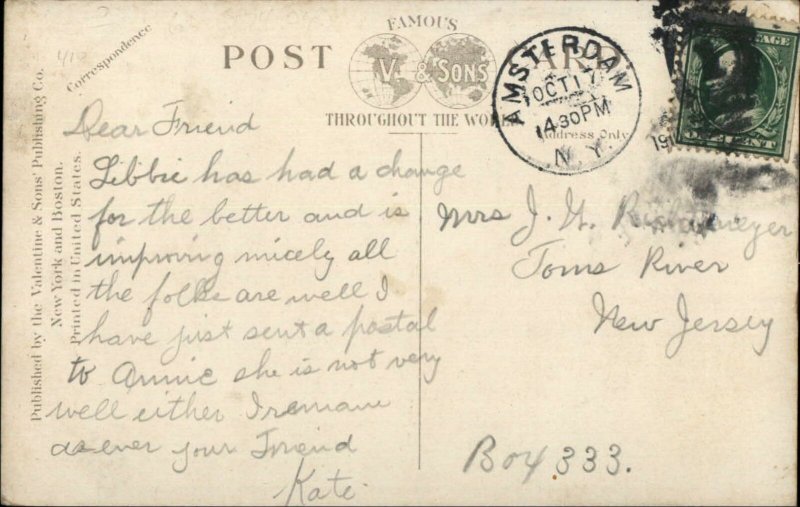 FAMOUS
POST CARD
V. & SONS
THROUGHOUT THE WORLD
Correspondence
Address Only
Published by the Valentine & Sons' Publishing Co.
New York and Boston.
Printed in United States.
AMSTERDAM
OCT 17
4 30 PM
N. Y.
19
Dear Friend
Libbie has had a change
for the better and is
improving nicely all
the folks are well I
have just sent a postal
to Annie she is not very
well either I remain
as ever your Friend
Kate.
Mrs J. H.
Toms River
New Jersey
Box 333.